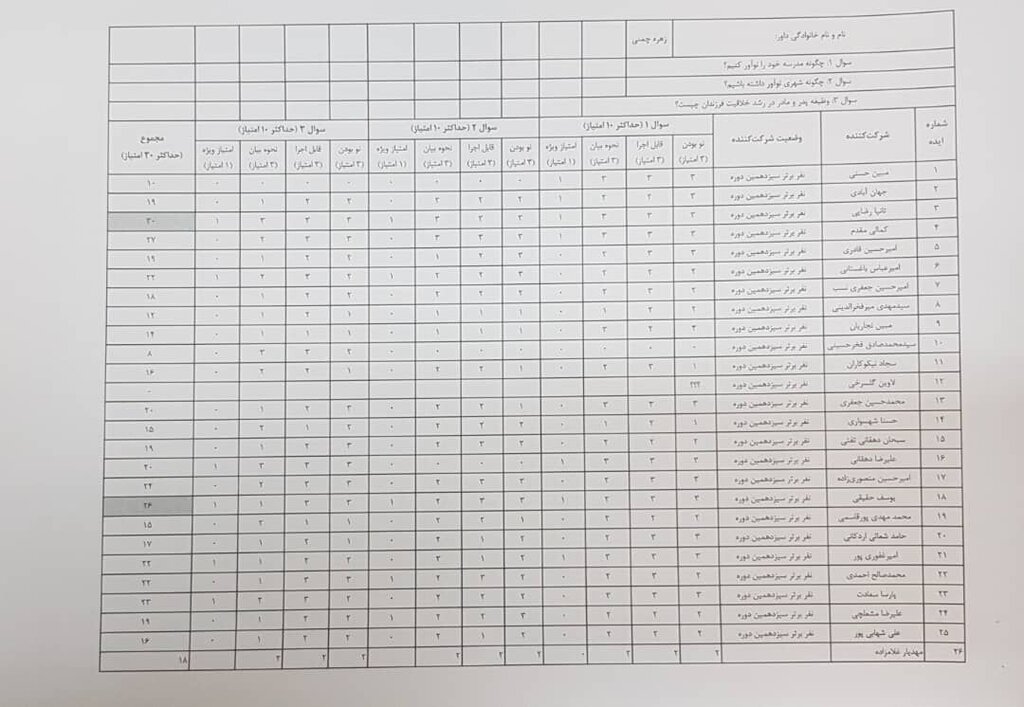 نام و نام خانوادگی داور: زهره چمنی
سوال ۱: چگونه مدرسه خود را نوآور کنیم؟
سوال ۲: چگونه شهری نوآور داشته باشیم؟
سوال ۳: وظیفه پدر و مادر در رشد خلاقیت فرزندان چیست؟
شماره ایده شرکت‌کننده وضعیت شرکت‌کننده سوال ۱ (حداکثر ۱۰ امتیاز) سوال ۲ (حداکثر ۱۰ امتیاز) سوال ۳ (حداکثر ۱۰ امتیاز) مجموع (حداکثر ۳۰ امتیاز)
نو بودن (۳ امتیاز) قابل اجرا (۳ امتیاز) نحوه بیان (۳ امتیاز) امتیاز ویژه (۱ امتیاز) نو بودن (۳ امتیاز) قابل اجرا (۳ امتیاز) نحوه بیان (۳ امتیاز) امتیاز ویژه (۱ امتیاز) نو بودن (۳ امتیاز) قابل اجرا (۳ امتیاز) نحوه بیان (۳ امتیاز) امتیاز ویژه (۱ امتیاز)
۱ مبین حسنی نفر برتر سیزدهمین دوره ۳ ۳ ۳ ۱ ۰ ۰ ۰ ۰ ۰ ۰ ۰ ۰ ۱۰
۲ جهان آبادی نفر برتر سیزدهمین دوره ۳ ۲ ۲ ۱ ۲ ۲ ۲ ۰ ۲ ۲ ۱ ۰ ۱۹
۳ ثانیا رضایی نفر برتر سیزدهمین دوره ۳ ۳ ۳ ۱ ۳ ۳ ۳ ۱ ۳ ۳ ۳ ۱ ۳۰
۴ کمالی مقدم نفر برتر سیزدهمین دوره ۳ ۳ ۳ ۱ ۳ ۳ ۳ ۰ ۳ ۳ ۲ ۰ ۲۷
۵ امیرحسین قادری نفر برتر سیزدهمین دوره ۳ ۳ ۲ ۰ ۳ ۲ ۱ ۰ ۲ ۲ ۱ ۰ ۱۹
۶ امیرعباس باغستانی نفر برتر سیزدهمین دوره ۲ ۲ ۲ ۰ ۳ ۲ ۲ ۱ ۲ ۳ ۲ ۱ ۲۲
۷ امیرحسین جعفری نسب نفر برتر سیزدهمین دوره ۲ ۳ ۲ ۰ ۲ ۲ ۲ ۰ ۲ ۲ ۱ ۰ ۱۸
۸ سیدمهدی میرفخرالدینی نفر برتر سیزدهمین دوره ۲ ۲ ۱ ۰ ۱ ۱ ۱ ۰ ۱ ۲ ۱ ۰ ۱۲
۹ مبین نجاریان نفر برتر سیزدهمین دوره ۳ ۲ ۳ ۰ ۱ ۱ ۱ ۰ ۱ ۱ ۱ ۰ ۱۴
۱۰ سیدمحمدصادق فخرحسینی نفر برتر سیزدهمین دوره ۰ ۰ ۰ ۰ ۰ ۰ ۰ ۰ ۲ ۳ ۳ ۰ ۸
۱۱ سجاد نیکوکاران نفر برتر سیزدهمین دوره ۱ ۳ ۲ ۰ ۱ ۲ ۲ ۰ ۱ ۲ ۲ ۰ ۱۶
۱۲ لاوین گلسرخی نفر برتر سیزدهمین دوره ؟؟؟ ۰
۱۳ محمدحسین جعفری نفر برتر سیزدهمین دوره ۳ ۳ ۳ ۰ ۱ ۲ ۲ ۰ ۳ ۲ ۱ ۰ ۲۰
۱۴ حسنا شهسواری نفر برتر سیزدهمین دوره ۱ ۲ ۱ ۰ ۲ ۲ ۲ ۰ ۲ ۱ ۲ ۰ ۱۵
۱۵ سبحان دهقانی تفتی نفر برتر سیزدهمین دوره ۲ ۲ ۲ ۰ ۲ ۳ ۲ ۰ ۳ ۲ ۱ ۰ ۱۹
۱۶ علیرضا دهقانی نفر برتر سیزدهمین دوره ۳ ۳ ۳ ۱ ۰ ۰ ۰ ۰ ۳ ۳ ۳ ۱ ۲۰
۱۷ امیرحسین منصوری‌زاده نفر برتر سیزدهمین دوره ۳ ۳ ۲ ۰ ۲ ۳ ۳ ۰ ۳ ۳ ۲ ۰ ۲۴
۱۸ یوسف حقیقی نفر برتر سیزدهمین دوره ۳ ۳ ۲ ۱ ۲ ۳ ۳ ۱ ۳ ۳ ۱ ۱ ۲۶
۱۹ محمد مهدی پورقاسمی نفر برتر سیزدهمین دوره ۲ ۲ ۲ ۰ ۱ ۲ ۲ ۰ ۱ ۱ ۲ ۰ ۱۵
۲۰ حامد شمائی اردکانی نفر برتر سیزدهمین دوره ۳ ۳ ۲ ۰ ۲ ۱ ۲ ۰ ۱ ۲ ۱ ۰ ۱۷
۲۱ امیرغفوری پور نفر برتر سیزدهمین دوره ۳ ۳ ۳ ۱ ۳ ۱ ۲ ۰ ۲ ۲ ۱ ۱ ۲۲
۲۲ محمدصالح احمدی نفر برتر سیزدهمین دوره ۲ ۳ ۲ ۰ ۲ ۳ ۲ ۱ ۳ ۳ ۱ ۰ ۲۲
۲۳ پارسا سعادت نفر برتر سیزدهمین دوره ۳ ۳ ۳ ۰ ۲ ۲ ۲ ۰ ۲ ۳ ۲ ۱ ۲۳
۲۴ علیرضا مشعلچی نفر برتر سیزدهمین دوره ۲ ۲ ۲ ۰ ۳ ۲ ۲ ۱ ۲ ۲ ۱ ۰ ۱۹
۲۵ علی شهابی پور نفر برتر سیزدهمین دوره ۲ ۲ ۲ ۰ ۲ ۱ ۲ ۰ ۲ ۲ ۱ ۰ ۱۶
۲۶ مهدیار غلامزاده ۲ ۲ ۲ ۰ ۲ ۲ ۲ ۲ ۲ ۲ ۱۸